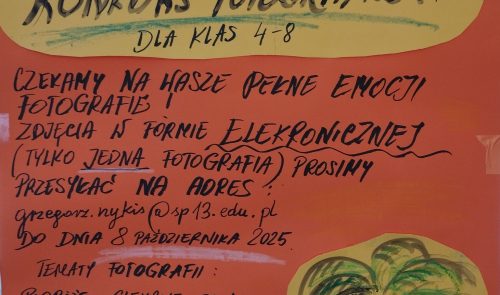 KONKURS FOTOGRAFICZNY
DLA KLAS 4-8
CZEKAMY NA WASZE PEŁNE EMOCJI
FOTOGRAFIE!
ZDJĘCIA W FORMIE ELEKRONICZNEJ
(TYLKO JEDNA FOTOGRAFIA) PROSIMY
PRZESYŁAĆ NA ADRES:
grzegorz.nykis@sp13.edu.pl
DO DNIA 8 PAŹDZIERNIKA 2025.
TEMATY FOTOGRAFII: